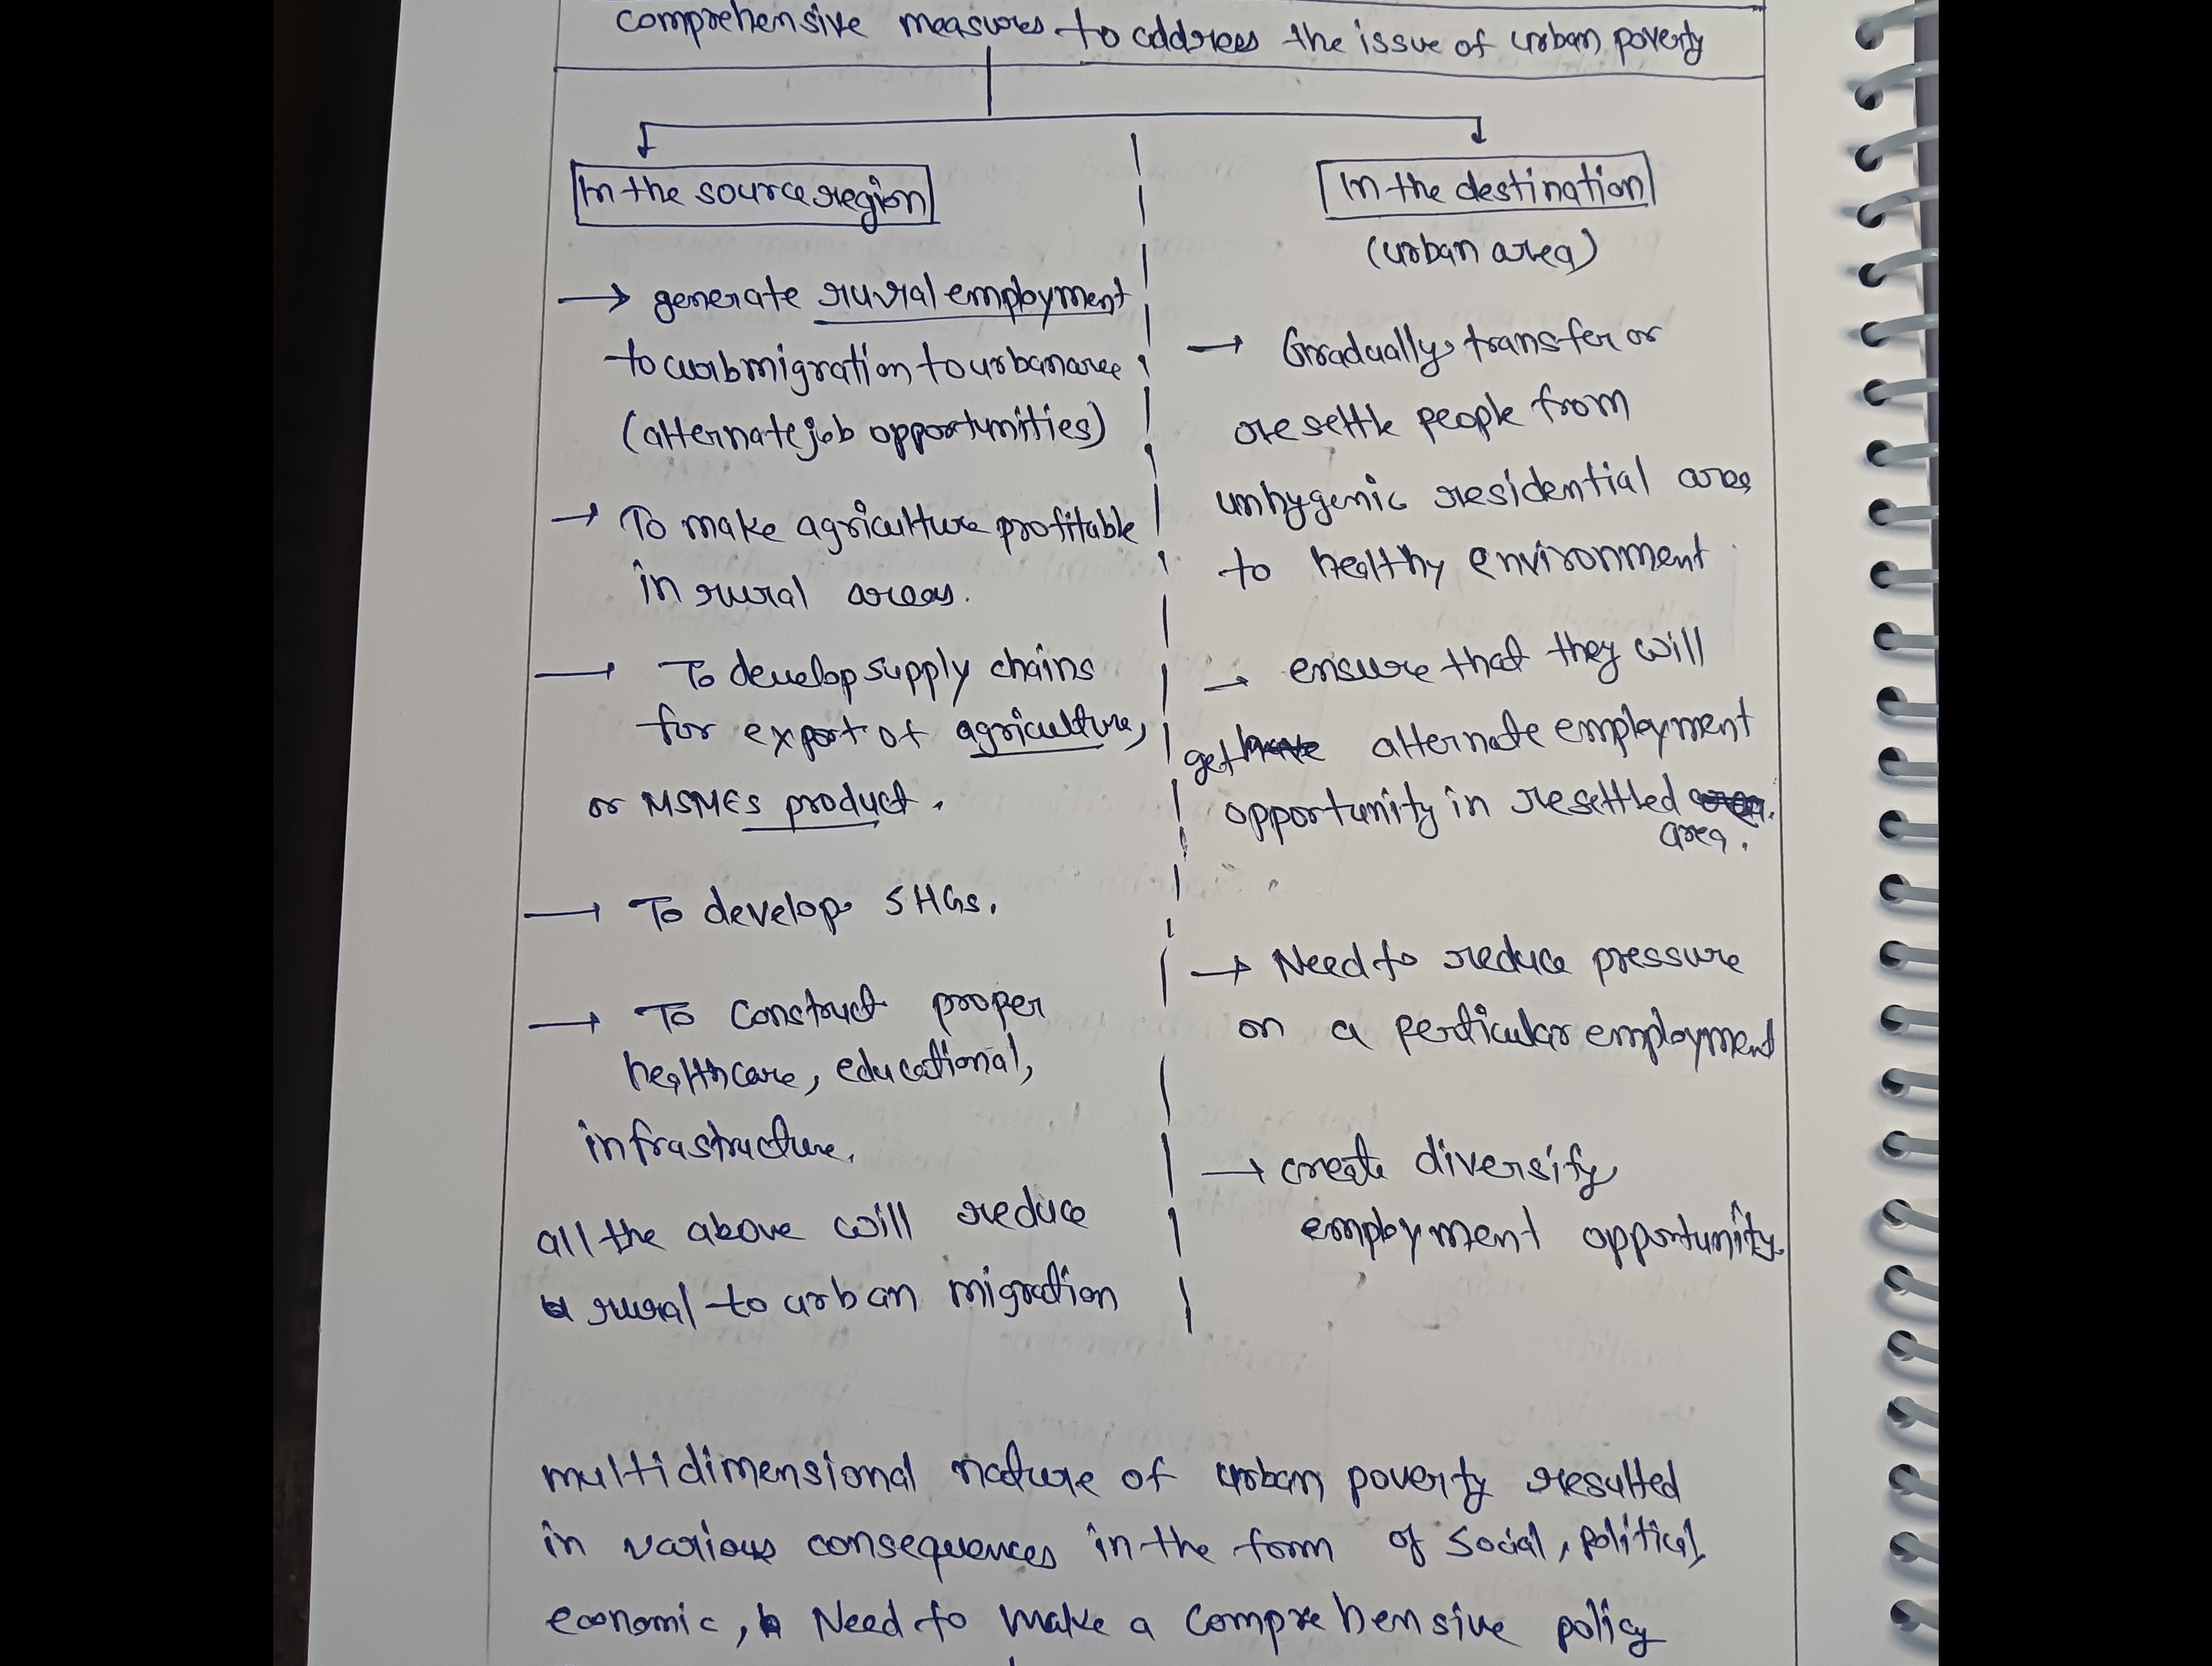 comprehensive measures to address the issue of urban poverty
In the source region
→ generate rural employment
to curb migration to urban area
(alternate job opportunities)
→ To make agriculture profitable
in rural areas.
→ To develop supply chains
for export of agriculture,
or MSMEs product.
→ To develop SHGs.
→ To construct proper
healthcare, educational,
infrastructure.
all the above will reduce
rural to urban migration
In the destination
(urban area)
→ Gradually transfer or
resettle people from
unhygenic residential area
to healthy environment
→ ensure that they will
get alternate employment
opportunity in resettled
area.
→ Need to reduce pressure
on a perticular employment
→ create diversify
employment opportunity.
multidimensional nature of urban poverty resulted
in various consequences in the form of social, political,
economic, Need to make a comprehensive policy